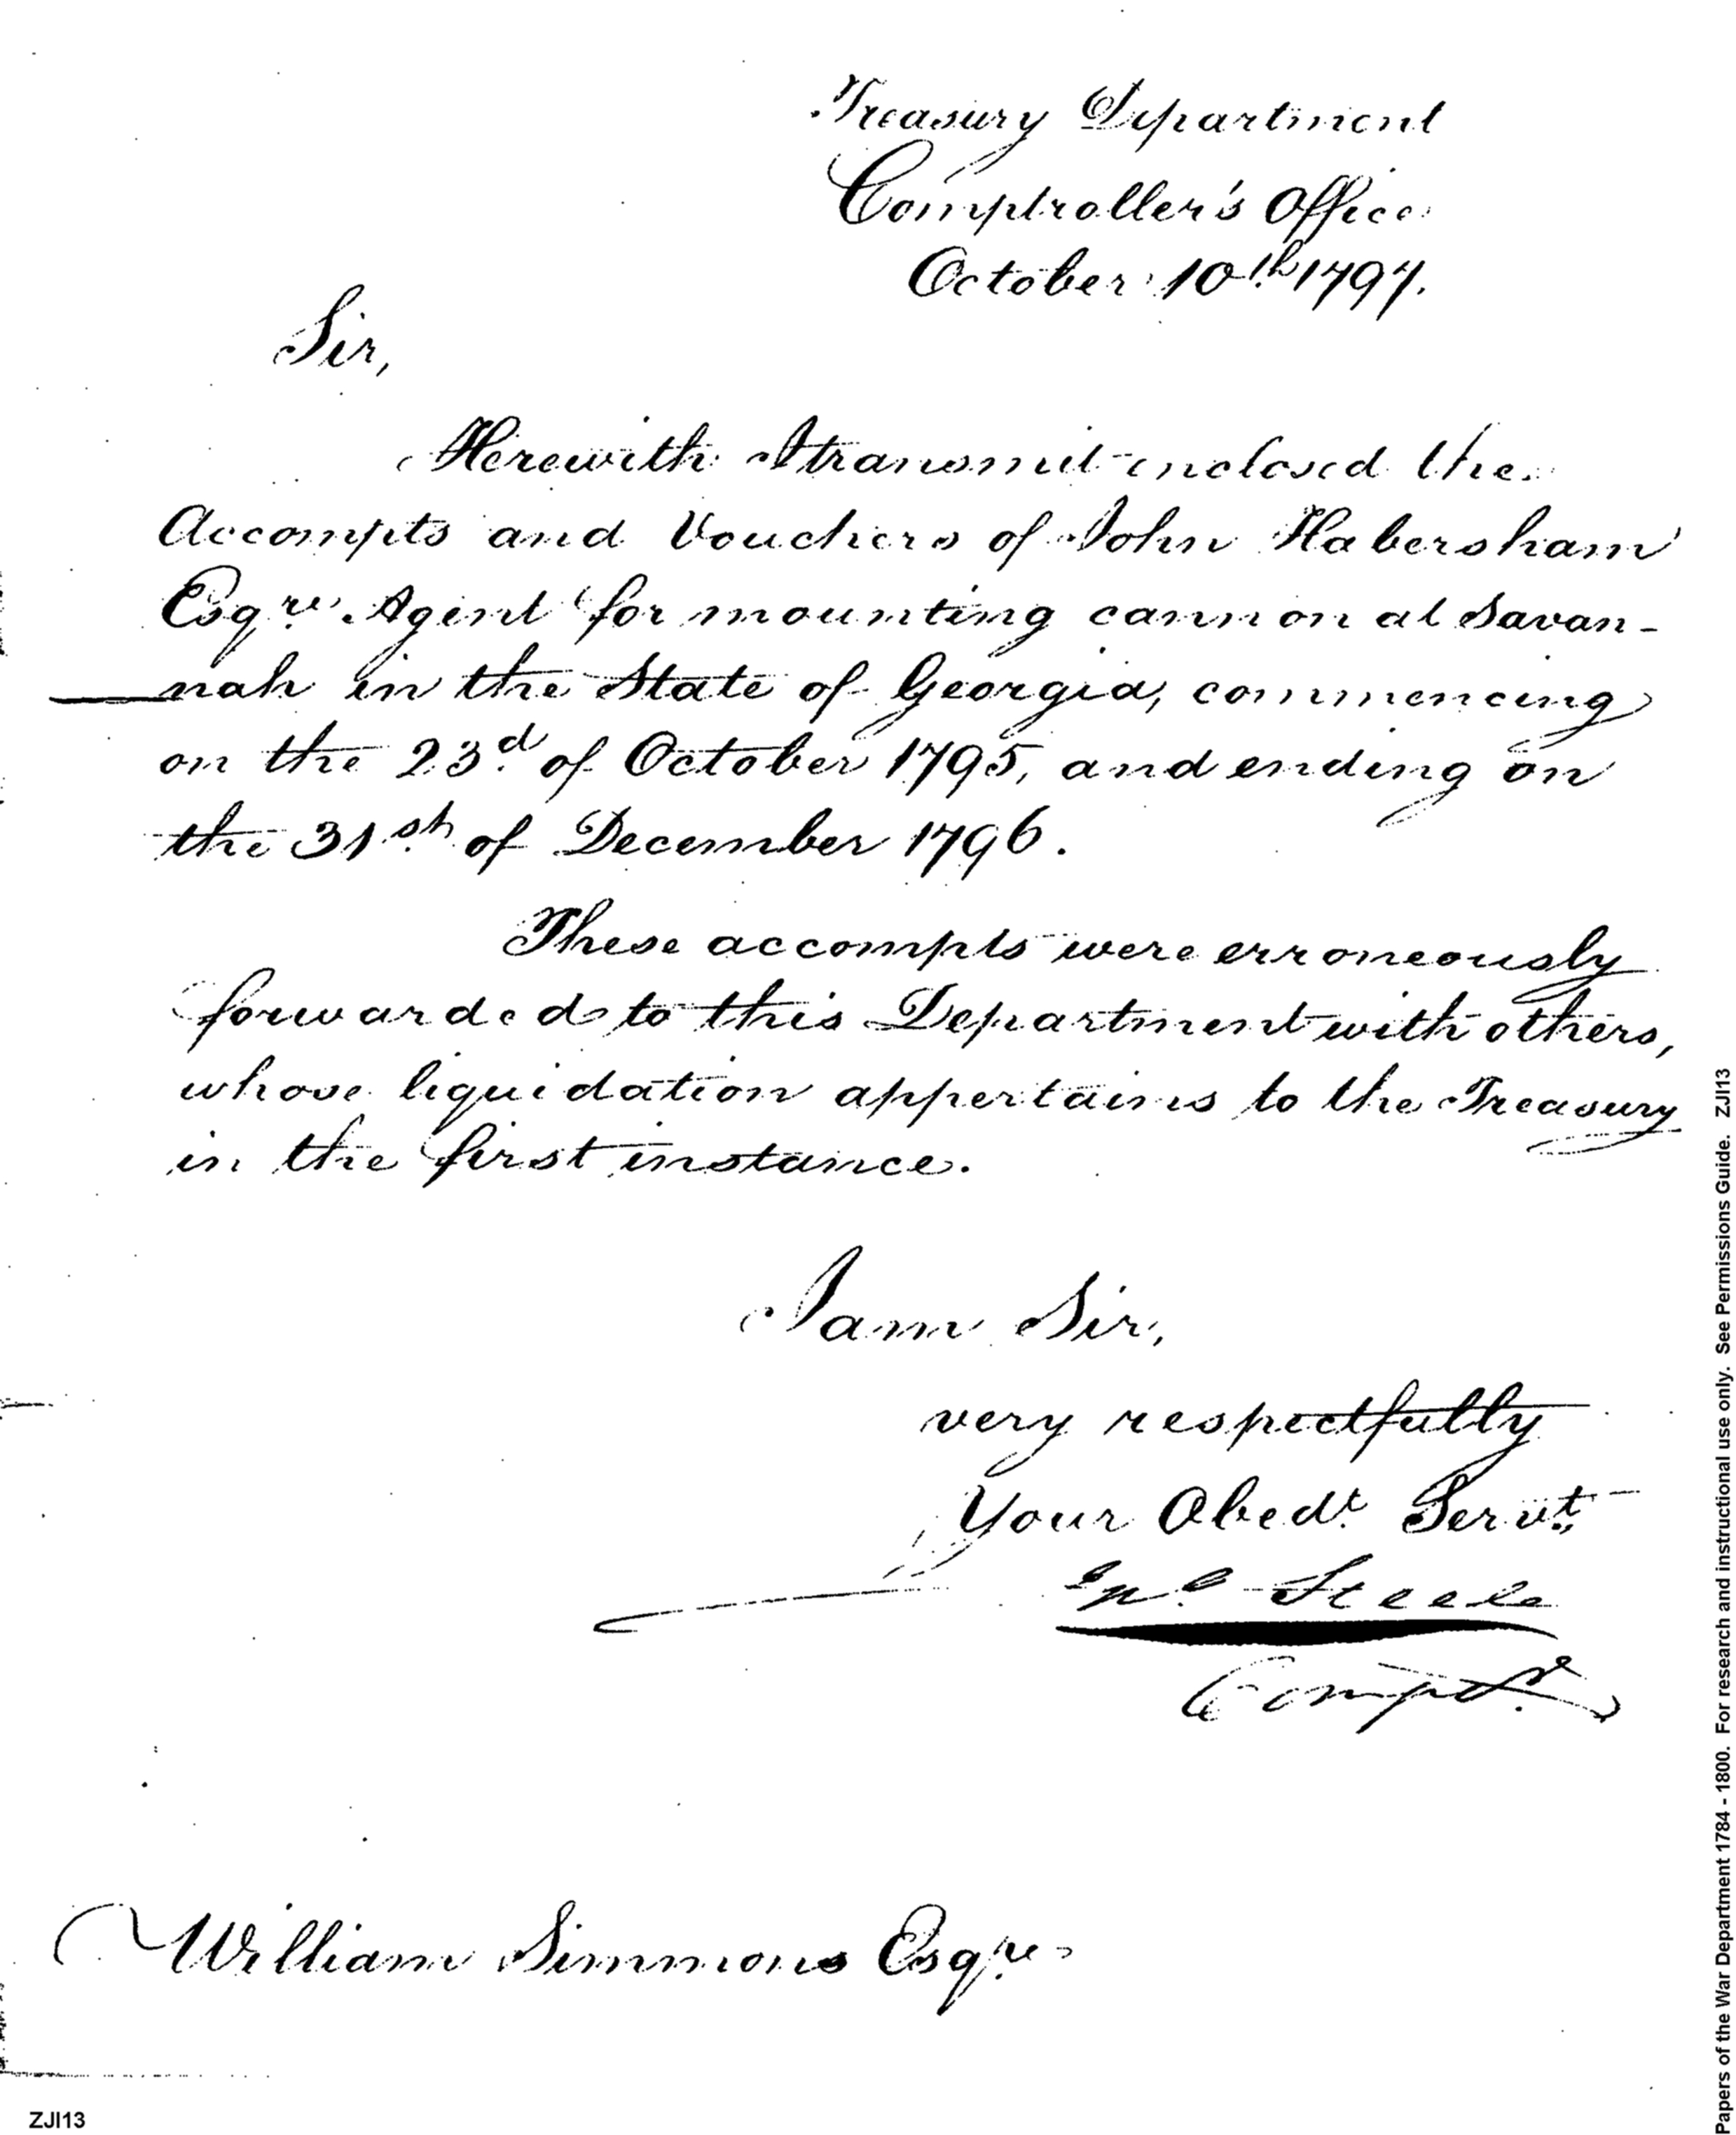 Treasury Department
Comptroller's Office
October 10th 1797.
Sir,
Herewith I transmit inclosed the
Accompts and Vouchers of John Habersham
Esqre. Agent for mounting cannon at Savan-
nah in the State of Georgia, commencing
on the 23d. of October 1795, and ending on
the 31st. of December 1796.
These accompts were erroneously
forwarded to this Department with others,
whose liquidation appertains to the Treasury
in the first instance.
I am Sir,
very respectfully
Your Obedt. Servt.
Jno. Steele
Comptr.
William Simmons Esqre.
ZJI13
Papers of the War Department 1784 - 1800. For research and instructional use only. See Permissions Guide. ZJI13